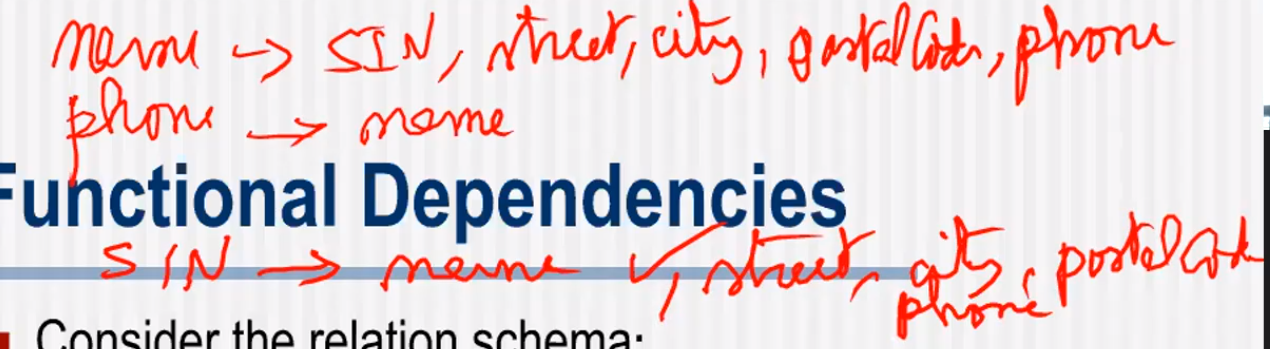 name → SIN, street, city, postalCode, phone
phone → name
Functional Dependencies
SIN → name ✓, street, city, postalCode
phone
Consider the relation schema: